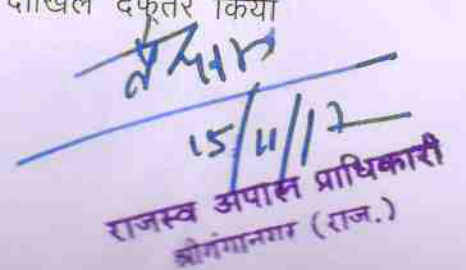 दाखिल दफ्तर किया
15/11/17
राजस्व अपील प्राधिकारी
श्रीगंगानगर (राज.)